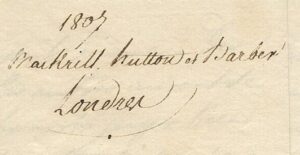 1807
Mackrill, Hutton et Barber
Londres